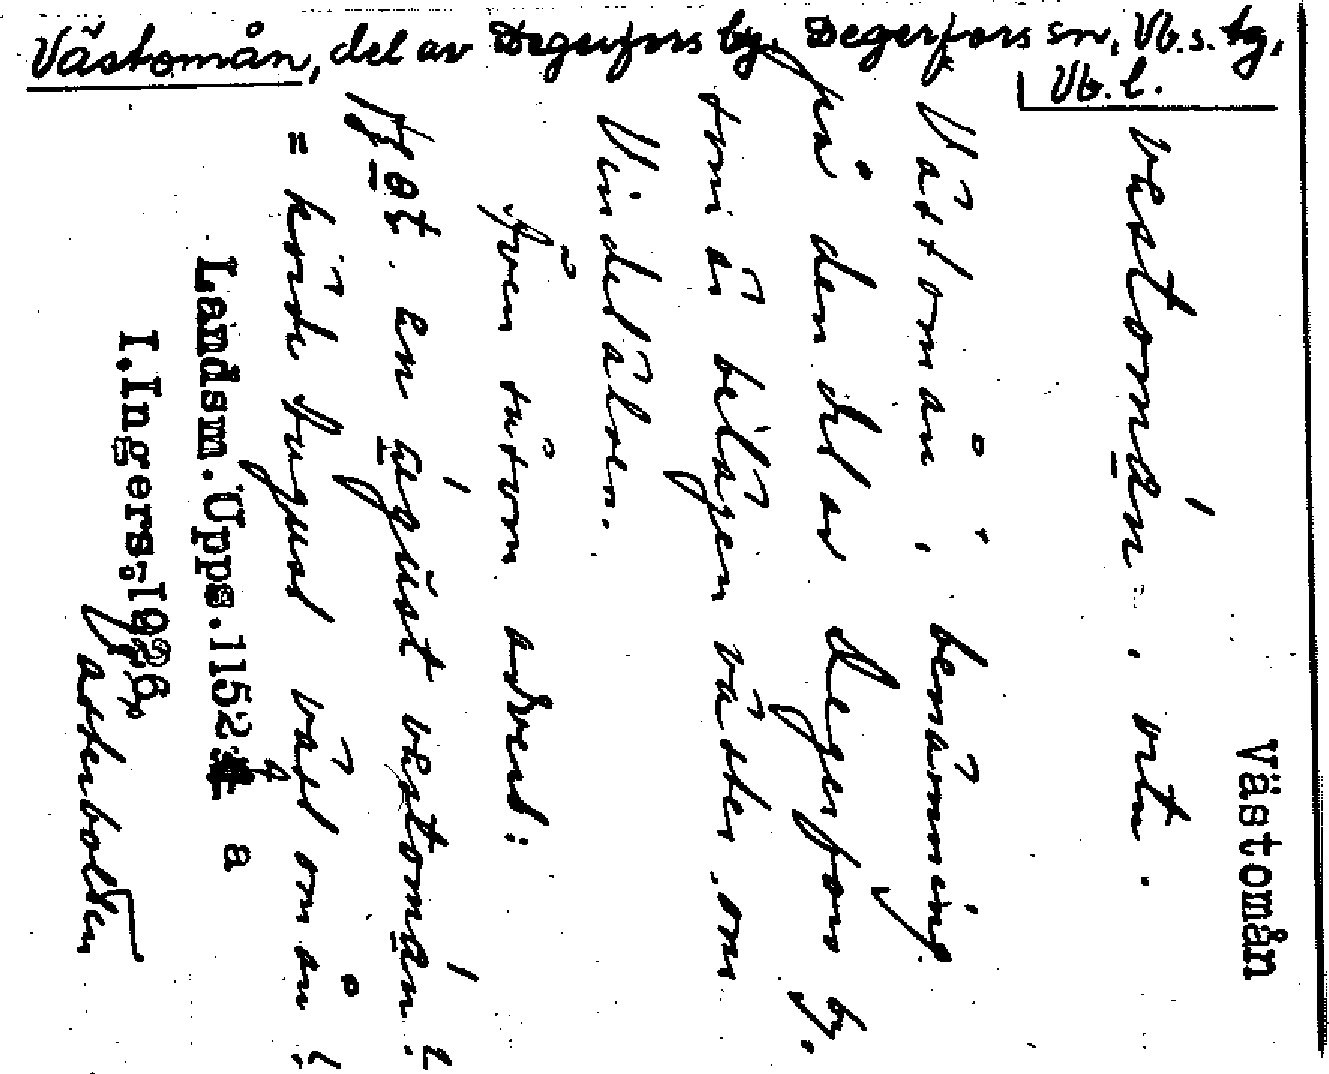 Västomån, del av Degerfors by, Degerfors sn, Vb.s. tg,
Vb. l.
Västomån
vestomán . ortn.
Västomån, benämning
på den del av Degerfors by.
som är belägen väster om
Vindelälven.
Även såsom adverb:
en ágúst vestomán!
= August väst om ån!
Landsm. Upps. 1152: a
I. Ingers. 1926.